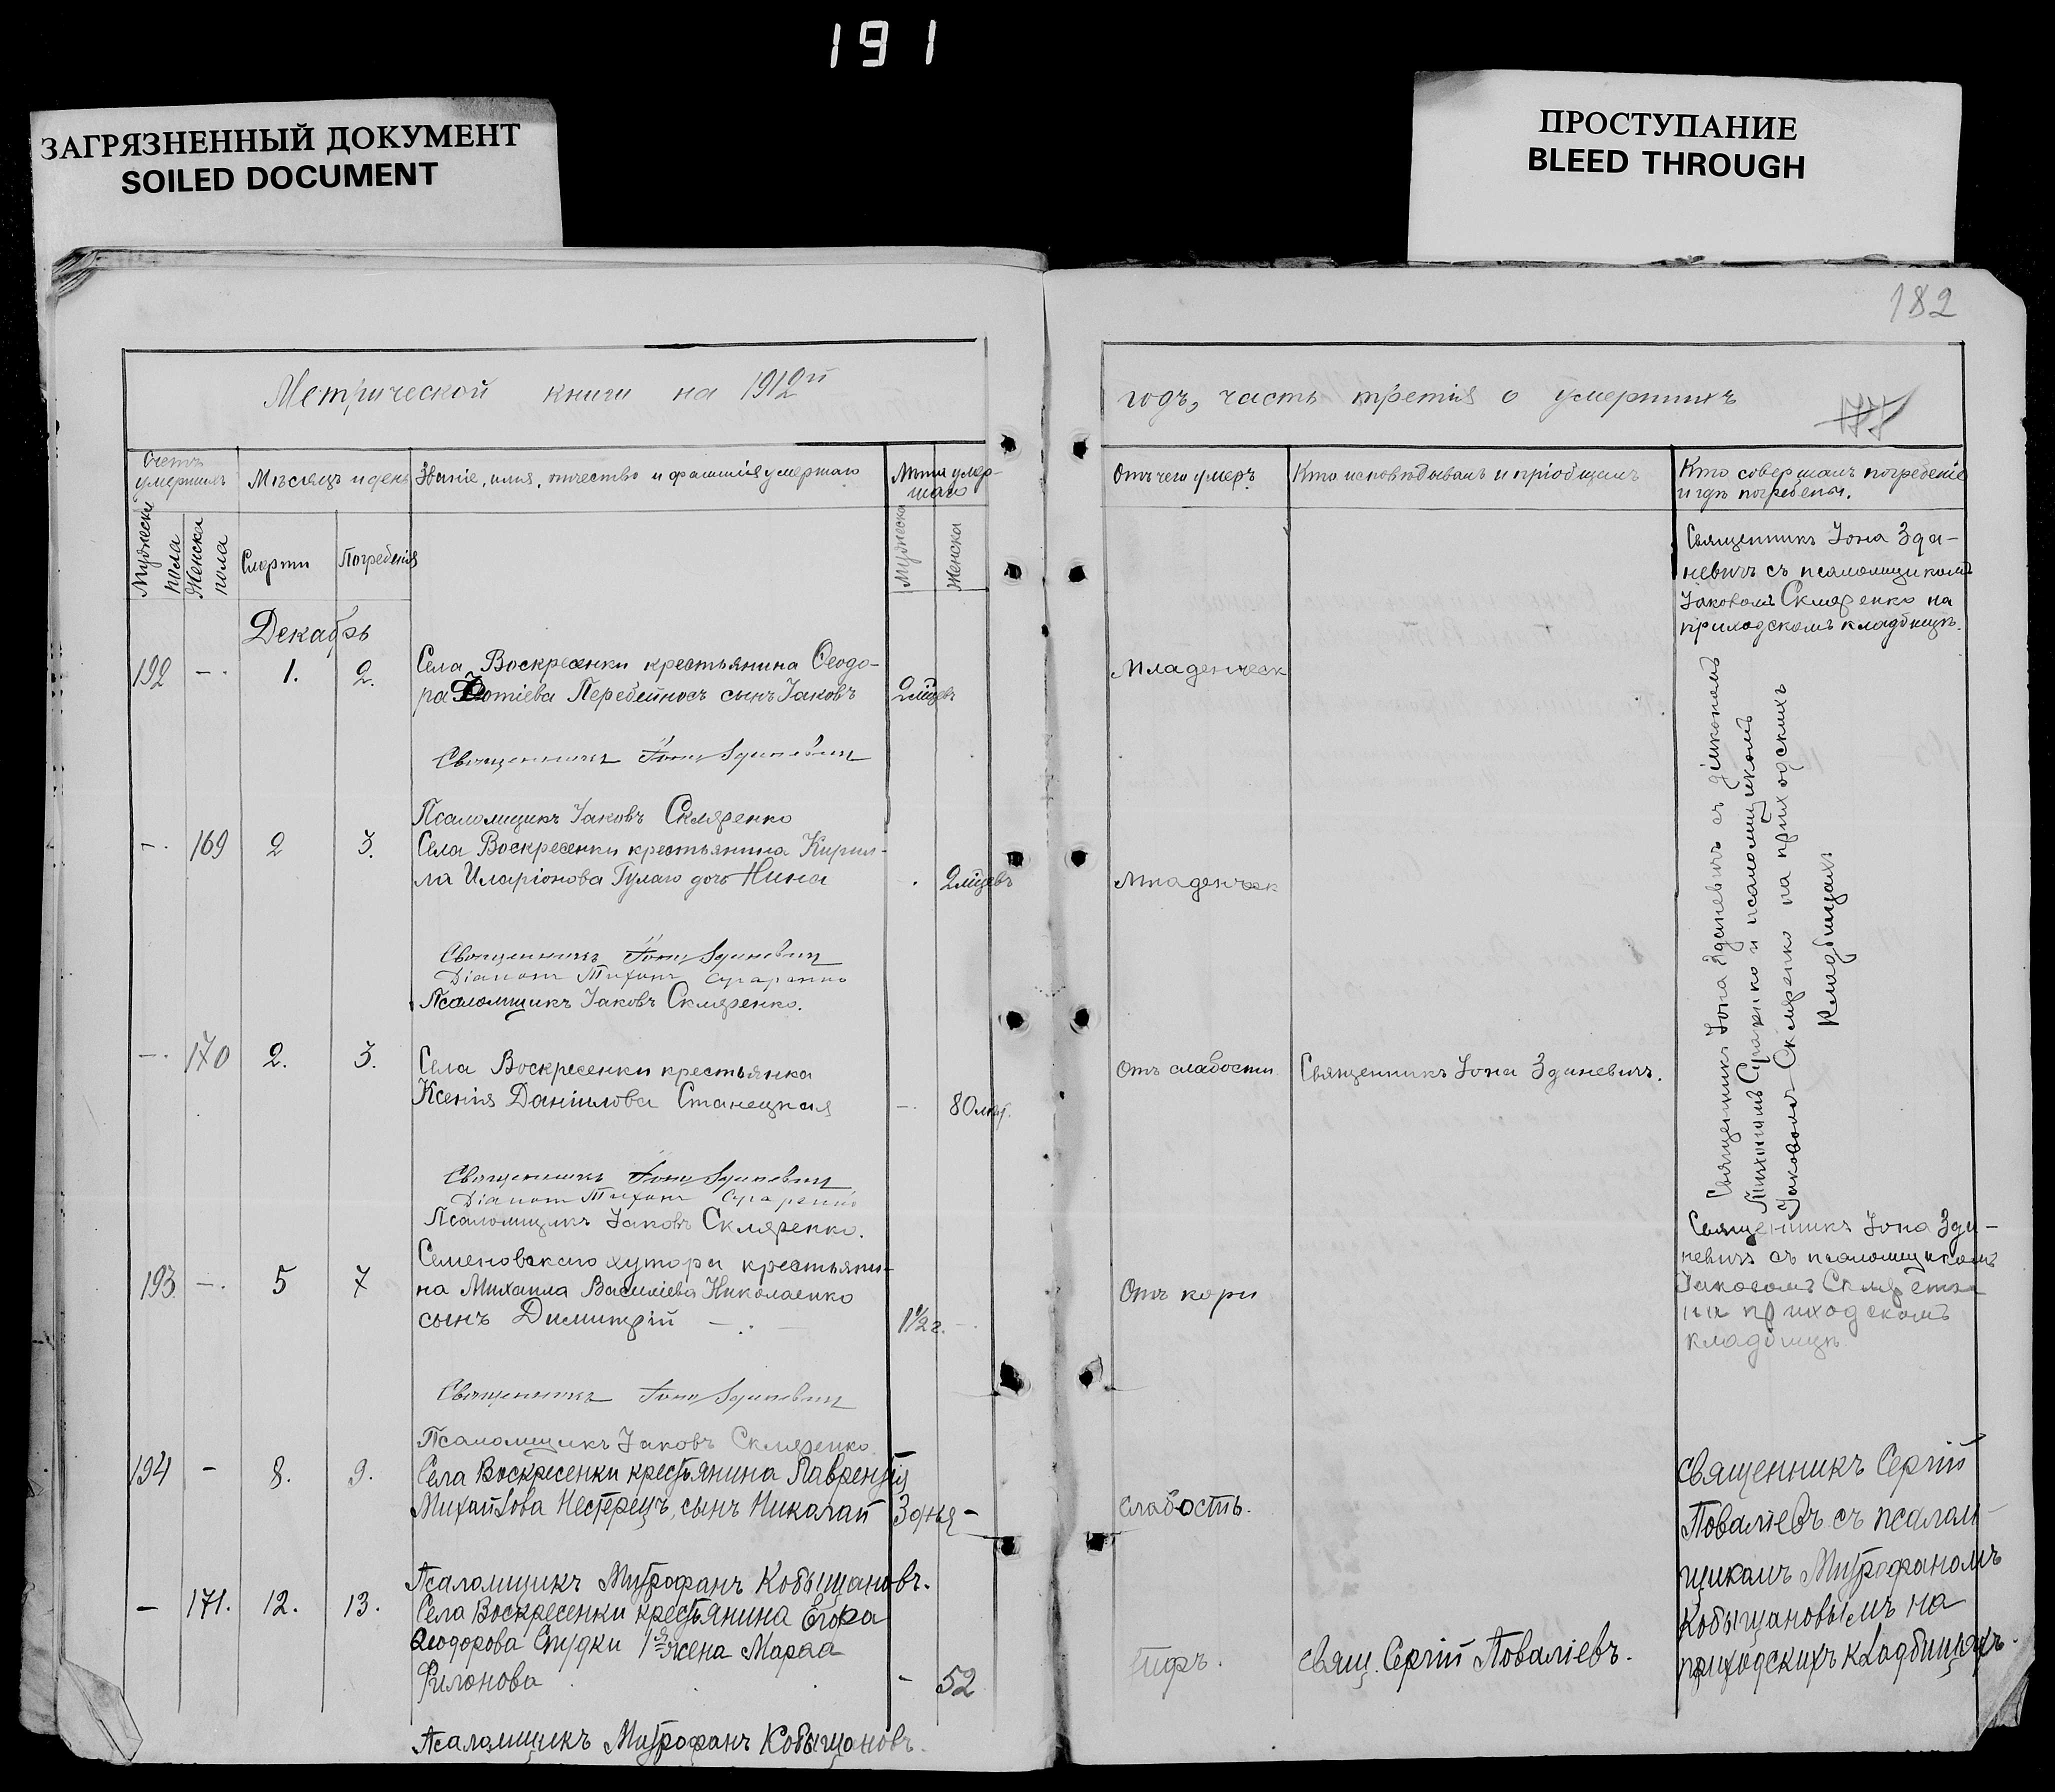 191
ЗАГРЯЗНЕННЫЙ ДОКУМЕНТ
SOILED DOCUMENT
ПРОСТУПАНИЕ
BLEED THROUGH
182
Метрической книги на 1912й
годъ, часть третія о умершихъ
177
Счетъ умершихъ
Мѣсяцъ и день
Званіе, имя, отчество и фамилія умершаго
Лѣта умер-
шаго
Отъ чего умеръ.
Кто исповѣдывалъ и пріобщалъ
Кто совершалъ погребеніе
и гдѣ погребены.
Мужеска пола
Женска пола
Смерти
Погребенія
Мужеска
Женска
Декабрь
192 — 1. 2.
Села Воскресенки крестьянина Ѳеодо-
ра Фотіева Перебейносъ сынъ Іаковъ
2 мѣсцевъ
Младенческ
Священникъ Іона Зда-
невичъ съ псаломщикомъ
Іаковомъ Скляренко на
приходскомъ кладбищѣ.
Священникъ Іона Зданевич
Псаломщикъ Іаковъ Скляренко
— 169 2 3.
Села Воскресенки крестьянина Кирил-
ла Иларіонова Гулаго дочь Нина
2 мѣсцевъ
Младенческ
Священникъ Іона Зданевич
Діаконъ Тихонъ
Псаломщикъ Іаковъ Скляренко.
— 170 2. 3.
Села Воскресенки крестьянка
Ксенія Даніилова Станецкая
— 80 лѣт.
Отъ слабости
Священникъ Іона Зданевичъ.
Священникъ Іона Зданевичъ съ діакономъ
Тихономъ и псаломщикомъ
Іаковомъ Скляренко на приходскихъ
кладбищахъ
Священникъ Іона Зданевич
Діаконъ Тихонъ
Псаломщикъ Іаковъ Скляренко.
193 — 5 7
Семеновскаго хутора крестьяни-
на Михаила Василіева Николаенко
сынъ Димитрій
1½ г. —
Отъ кори
Священникъ Іона Зда-
невичъ съ псаломщикомъ
Іаковомъ
на приходскомъ
кладбищѣ
Священникъ Іона Зданевич
Псаломщикъ Іаковъ Скляренко
194 — 8. 9.
Села Воскресенки крестьянина Лаврентія
Михайлова Нестерецъ, сынъ Николай
3 дня —
слабость.
священникъ Сергій
Поваліевъ съ псалом-
щикомъ Митрофаномъ
Кобыщановымъ на
приходскихъ кладбищахъ.
Псаломщикъ Митрофанъ Кобыщановъ.
— 171. 12. 13.
Села Воскресенки крестьянина Егора
Ѳеодорова Студки 1я жена Марѳа
Филонова
— 52
тифъ.
свящ. Сергій Поваліевъ.
Псаломщикъ Митрофанъ Кобыщановъ.